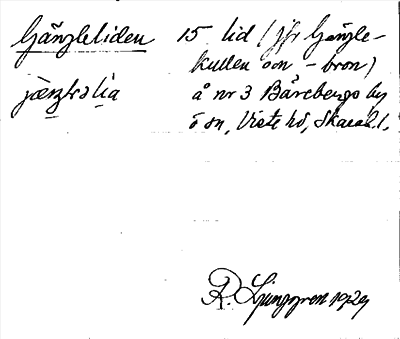 Gänzleliden 15 lid (jfr Gänzle-
kullen o̊n -bron)
å nr 3 Bårebergs by
ö sn, Viste hd, Skarab. l.
R. Ljunggren 1929